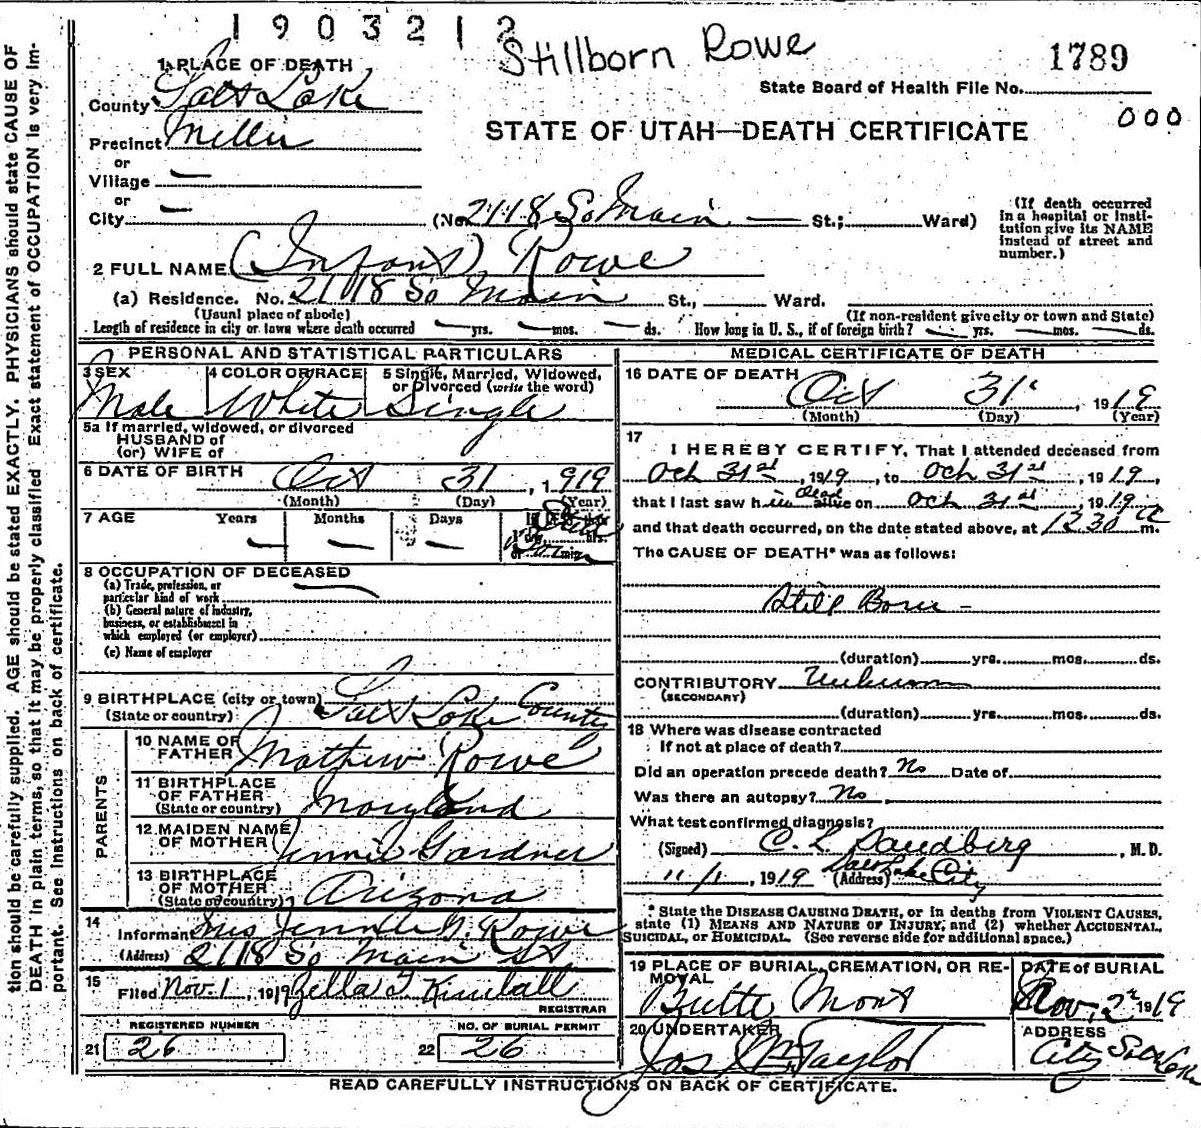 1903212
Stillborn Rowe
1789
State Board of Health File No.
000
STATE OF UTAH—DEATH CERTIFICATE
1 PLACE OF DEATH
County Salt Lake
Precinct Miller
or
Village —
or
City —
(No. 2118 So Main — St.; Ward)
(If death occurred in a hospital or institution give its NAME instead of street and number.)
2 FULL NAME (Infant) Rowe
(a) Residence. No. 2118 So Main St., Ward.
(Usual place of abode)
(If non-resident give city or town and State)
Length of residence in city or town where death occurred — yrs. — mos. — ds. How long in U. S., if of foreign birth? — yrs. — mos. — ds.
PERSONAL AND STATISTICAL PARTICULARS
3 SEX
Male
4 COLOR OR RACE
White
5 Single, Married, Widowed, or Divorced (write the word)
Single
5a If married, widowed, or divorced
HUSBAND of
(or) WIFE of
6 DATE OF BIRTH Oct 31, 1919
(Month) (Day) (Year)
7 AGE Years Months Days
— — —
8 OCCUPATION OF DECEASED
(a) Trade, profession, or particular kind of work —
(b) General nature of industry, business, or establishment in which employed (or employer)
(c) Name of employer
9 BIRTHPLACE (city or town) Salt Lake County
(State or country)
PARENTS
10 NAME OF FATHER Mathew Rowe
11 BIRTHPLACE OF FATHER Maryland
(State or country)
12 MAIDEN NAME OF MOTHER Jennie Gardner
13 BIRTHPLACE OF MOTHER Arizona
(State or country)
14
Informant Mrs Jennie G. Rowe
(Address) 2118 So Main St
15
Filed Nov. 1, 1919 Zella T Kimball
REGISTRAR
REGISTERED NUMBER
21 26
NO. OF BURIAL PERMIT
22 26
MEDICAL CERTIFICATE OF DEATH
16 DATE OF DEATH
Oct 31, 1919
(Month) (Day) (Year)
17
I HEREBY CERTIFY, That I attended deceased from
Oct 31st, 1919, to Oct 31st, 1919,
that I last saw him dead alive on Oct 31st, 1919
and that death occurred, on the date stated above, at 12 30 a m.
The CAUSE OF DEATH* was as follows:
Still Born —
(duration) yrs. mos. ds.
CONTRIBUTORY Unknown
(SECONDARY)
(duration) yrs. mos. ds.
18 Where was disease contracted
If not at place of death?
Did an operation precede death? No Date of
Was there an autopsy? No
What test confirmed diagnosis?
(Signed) C. L. Sandberg, M. D.
11/1, 1919 (Address) Salt Lake City
* State the DISEASE CAUSING DEATH, or in deaths from VIOLENT CAUSES, state (1) MEANS AND NATURE OF INJURY, and (2) whether ACCIDENTAL, SUICIDAL, or HOMICIDAL. (See reverse side for additional space.)
19 PLACE OF BURIAL, CREMATION, OR REMOVAL
Butte Mont
DATE of BURIAL
Nov. 2 1919
20 UNDERTAKER
Jos Wm Taylor
ADDRESS
City Salt Lake
READ CAREFULLY INSTRUCTIONS ON BACK OF CERTIFICATE.
tion should be carefully supplied. AGE should be stated EXACTLY. PHYSICIANS should state CAUSE OF
DEATH in plain terms, so that it may be properly classified. Exact statement of OCCUPATION is very im-
portant. See instructions on back of certificate.